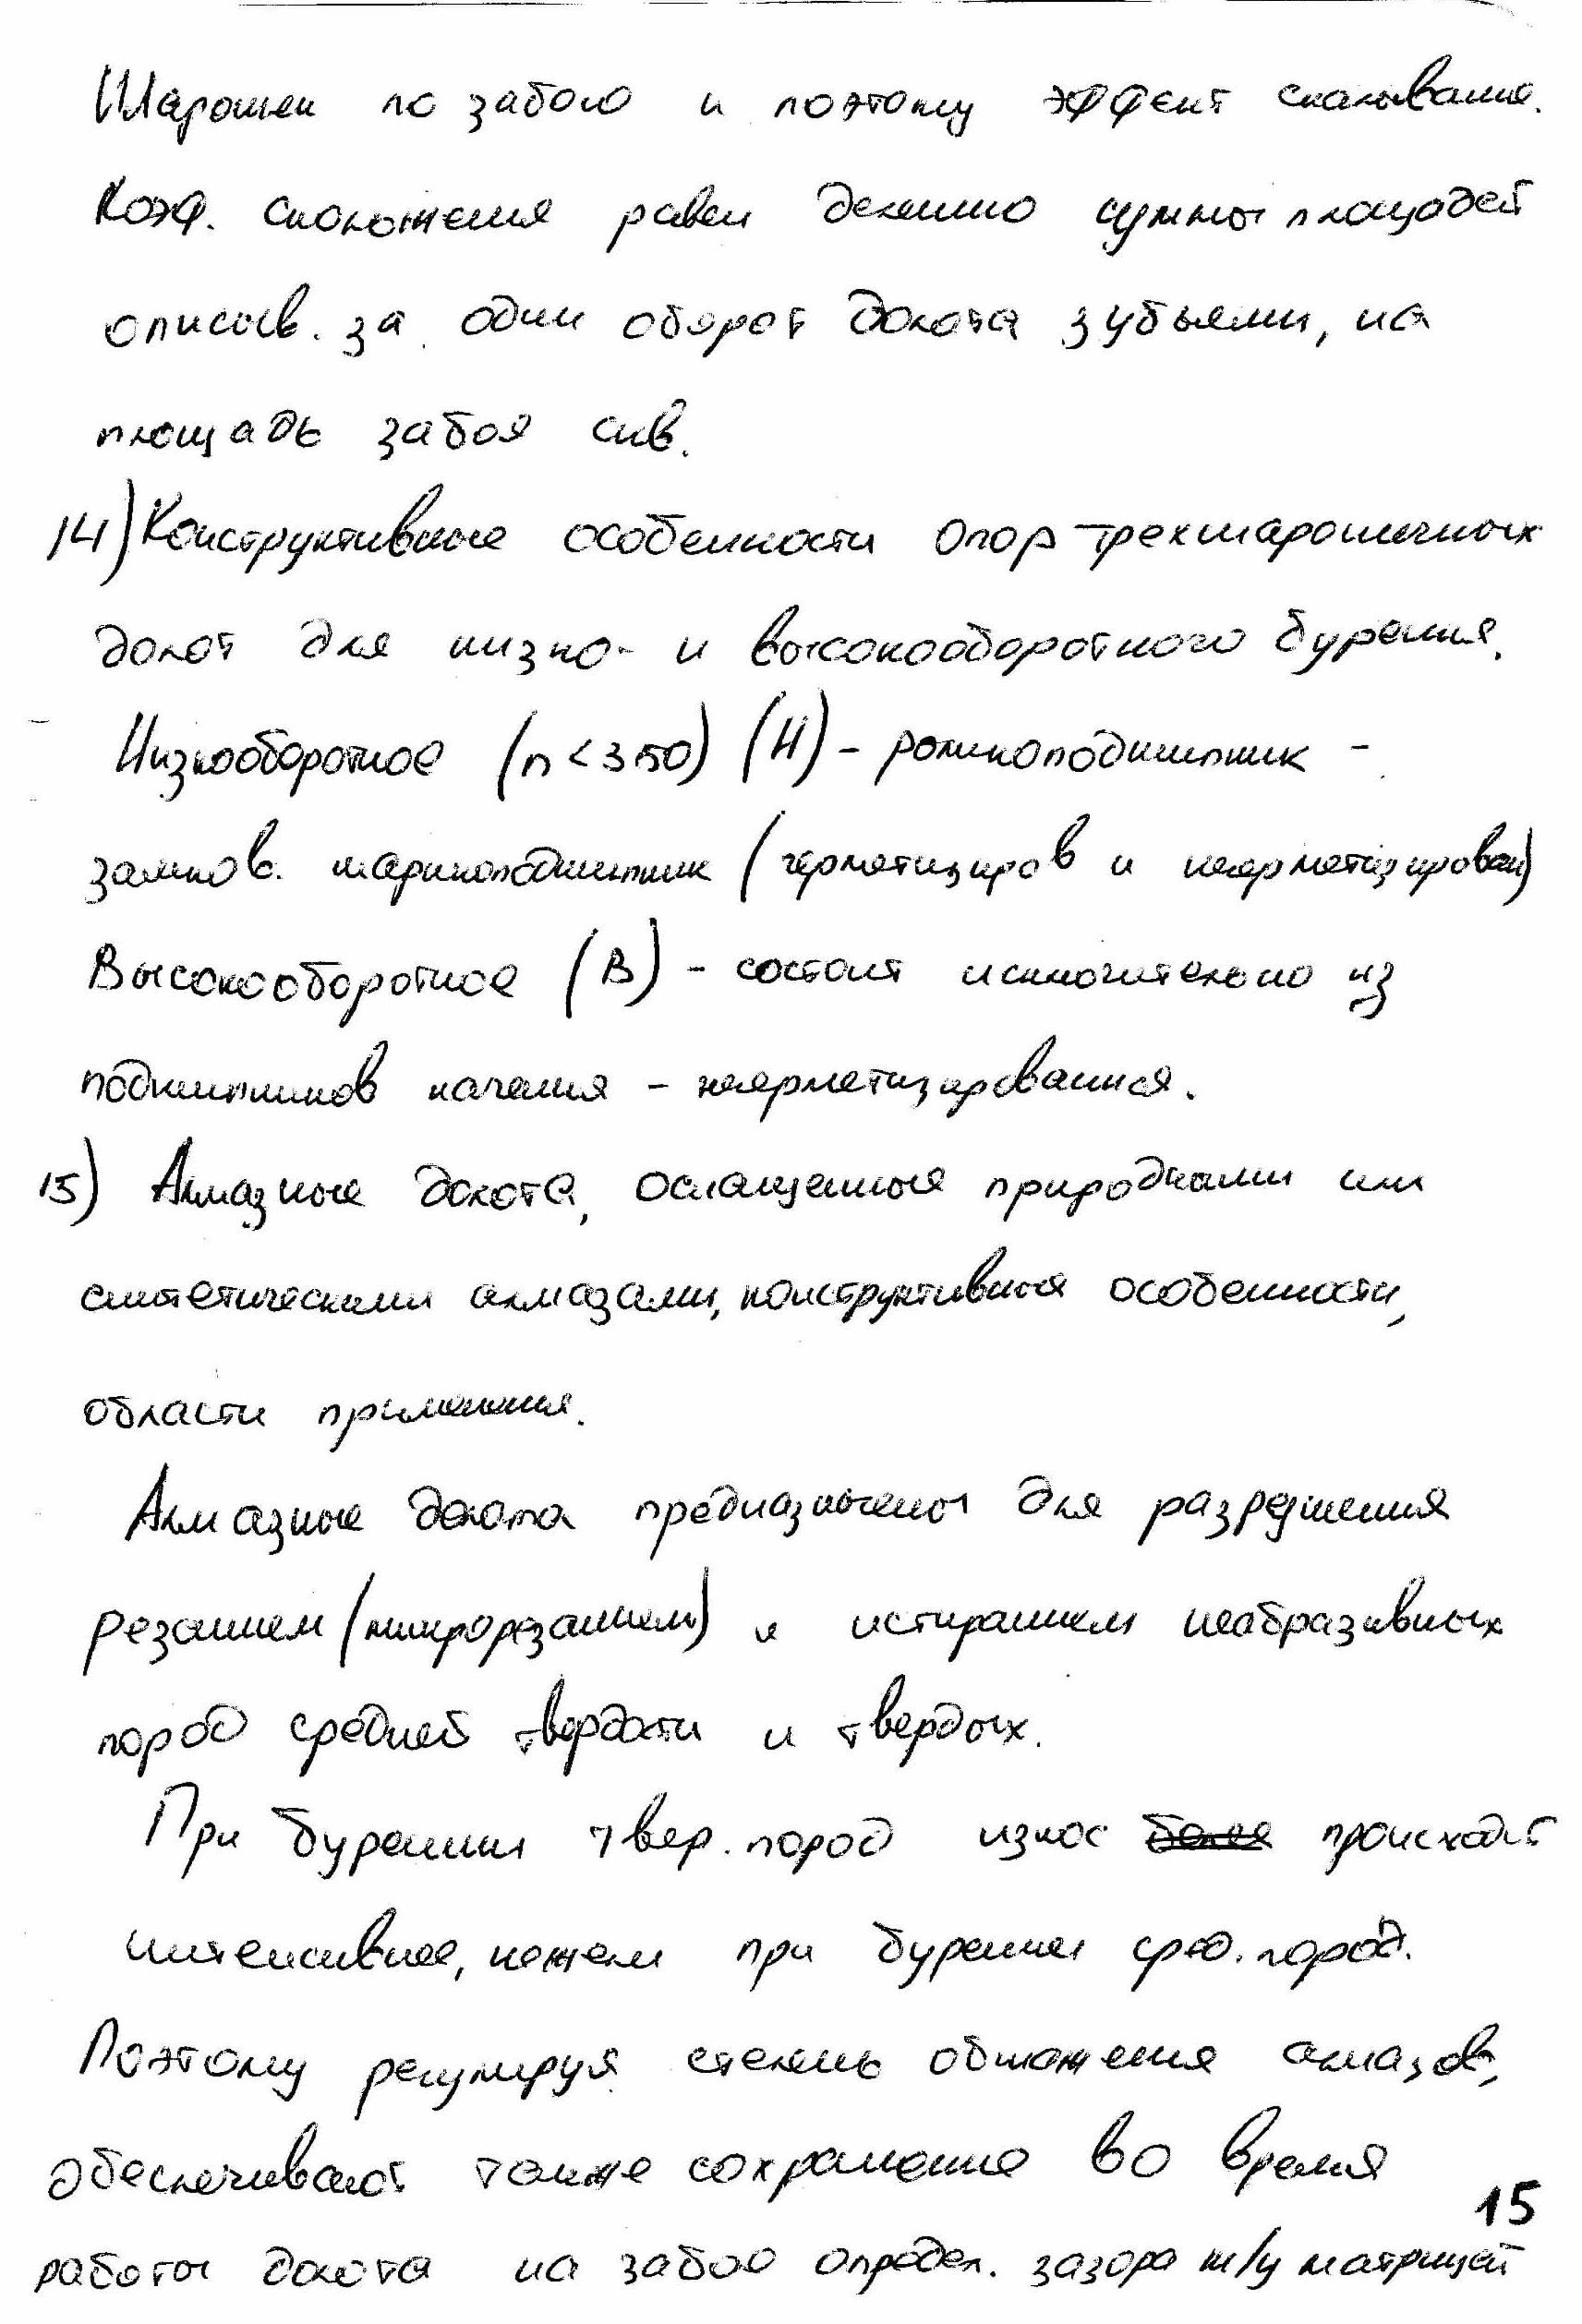 Шарошек по забою и поэтому эффект скалывания.
Коэф. скольжения равен делению суммы площадей
описыв. за один оборот долота зубьями, на
площадь забоя скв.
14) Конструктивные особенности опор трехшарошечных
долот для низко- и высокооборотного бурения.
Низкооборотное (n < 350) (Н) - роликоподшипник -
замков. шарикоподшипник (герметизиров и негерметизирован)
Высокооборотное (В) - состоит исключительно из
подшипников качения - негерметизированная.
15) Алмазные долота, оснащенные природными или
синтетическими алмазами, конструктивные особенности,
области применения.
Алмазные долота предназначены для разрушения
резанием (микрорезанием) и истиранием неабразивных
пород средней твердости и твердых.
При бурении твер. пород износ более происходит
интенсивнее, нежели при бурении сред. пород.
Поэтому регулируя степень обнажения алмазов,
обеспечивают также сохранение во время
работы долота на забое определ. зазора м/у матрицей
15